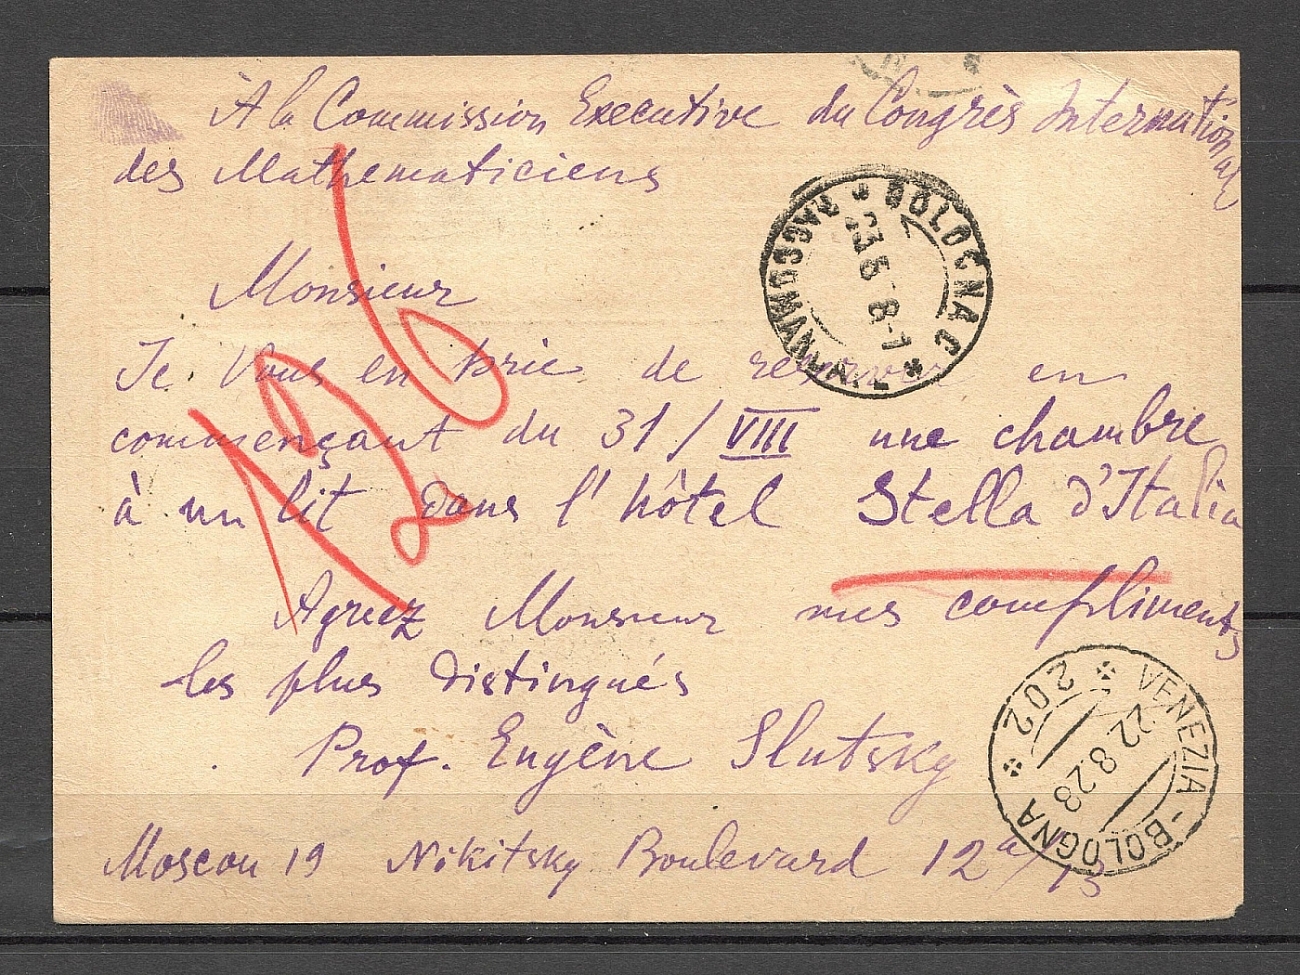 À la Commission Executive du Congrès International
des Mathématiciens
Monsieur
Je Vous en prie de reserver en
commençant du 31/VIII une chambre
à un lit dans l'hôtel Stella d'Italia
Agréez Monsieur mes compliments
les plus distingués
Prof. Eugène Slutsky
Moscou 19 Nikitsky Boulevard 12a/13
126
BOLOGNA C
RACCOMAN
VENEZIA - BOLOGNA
202
22.8.28